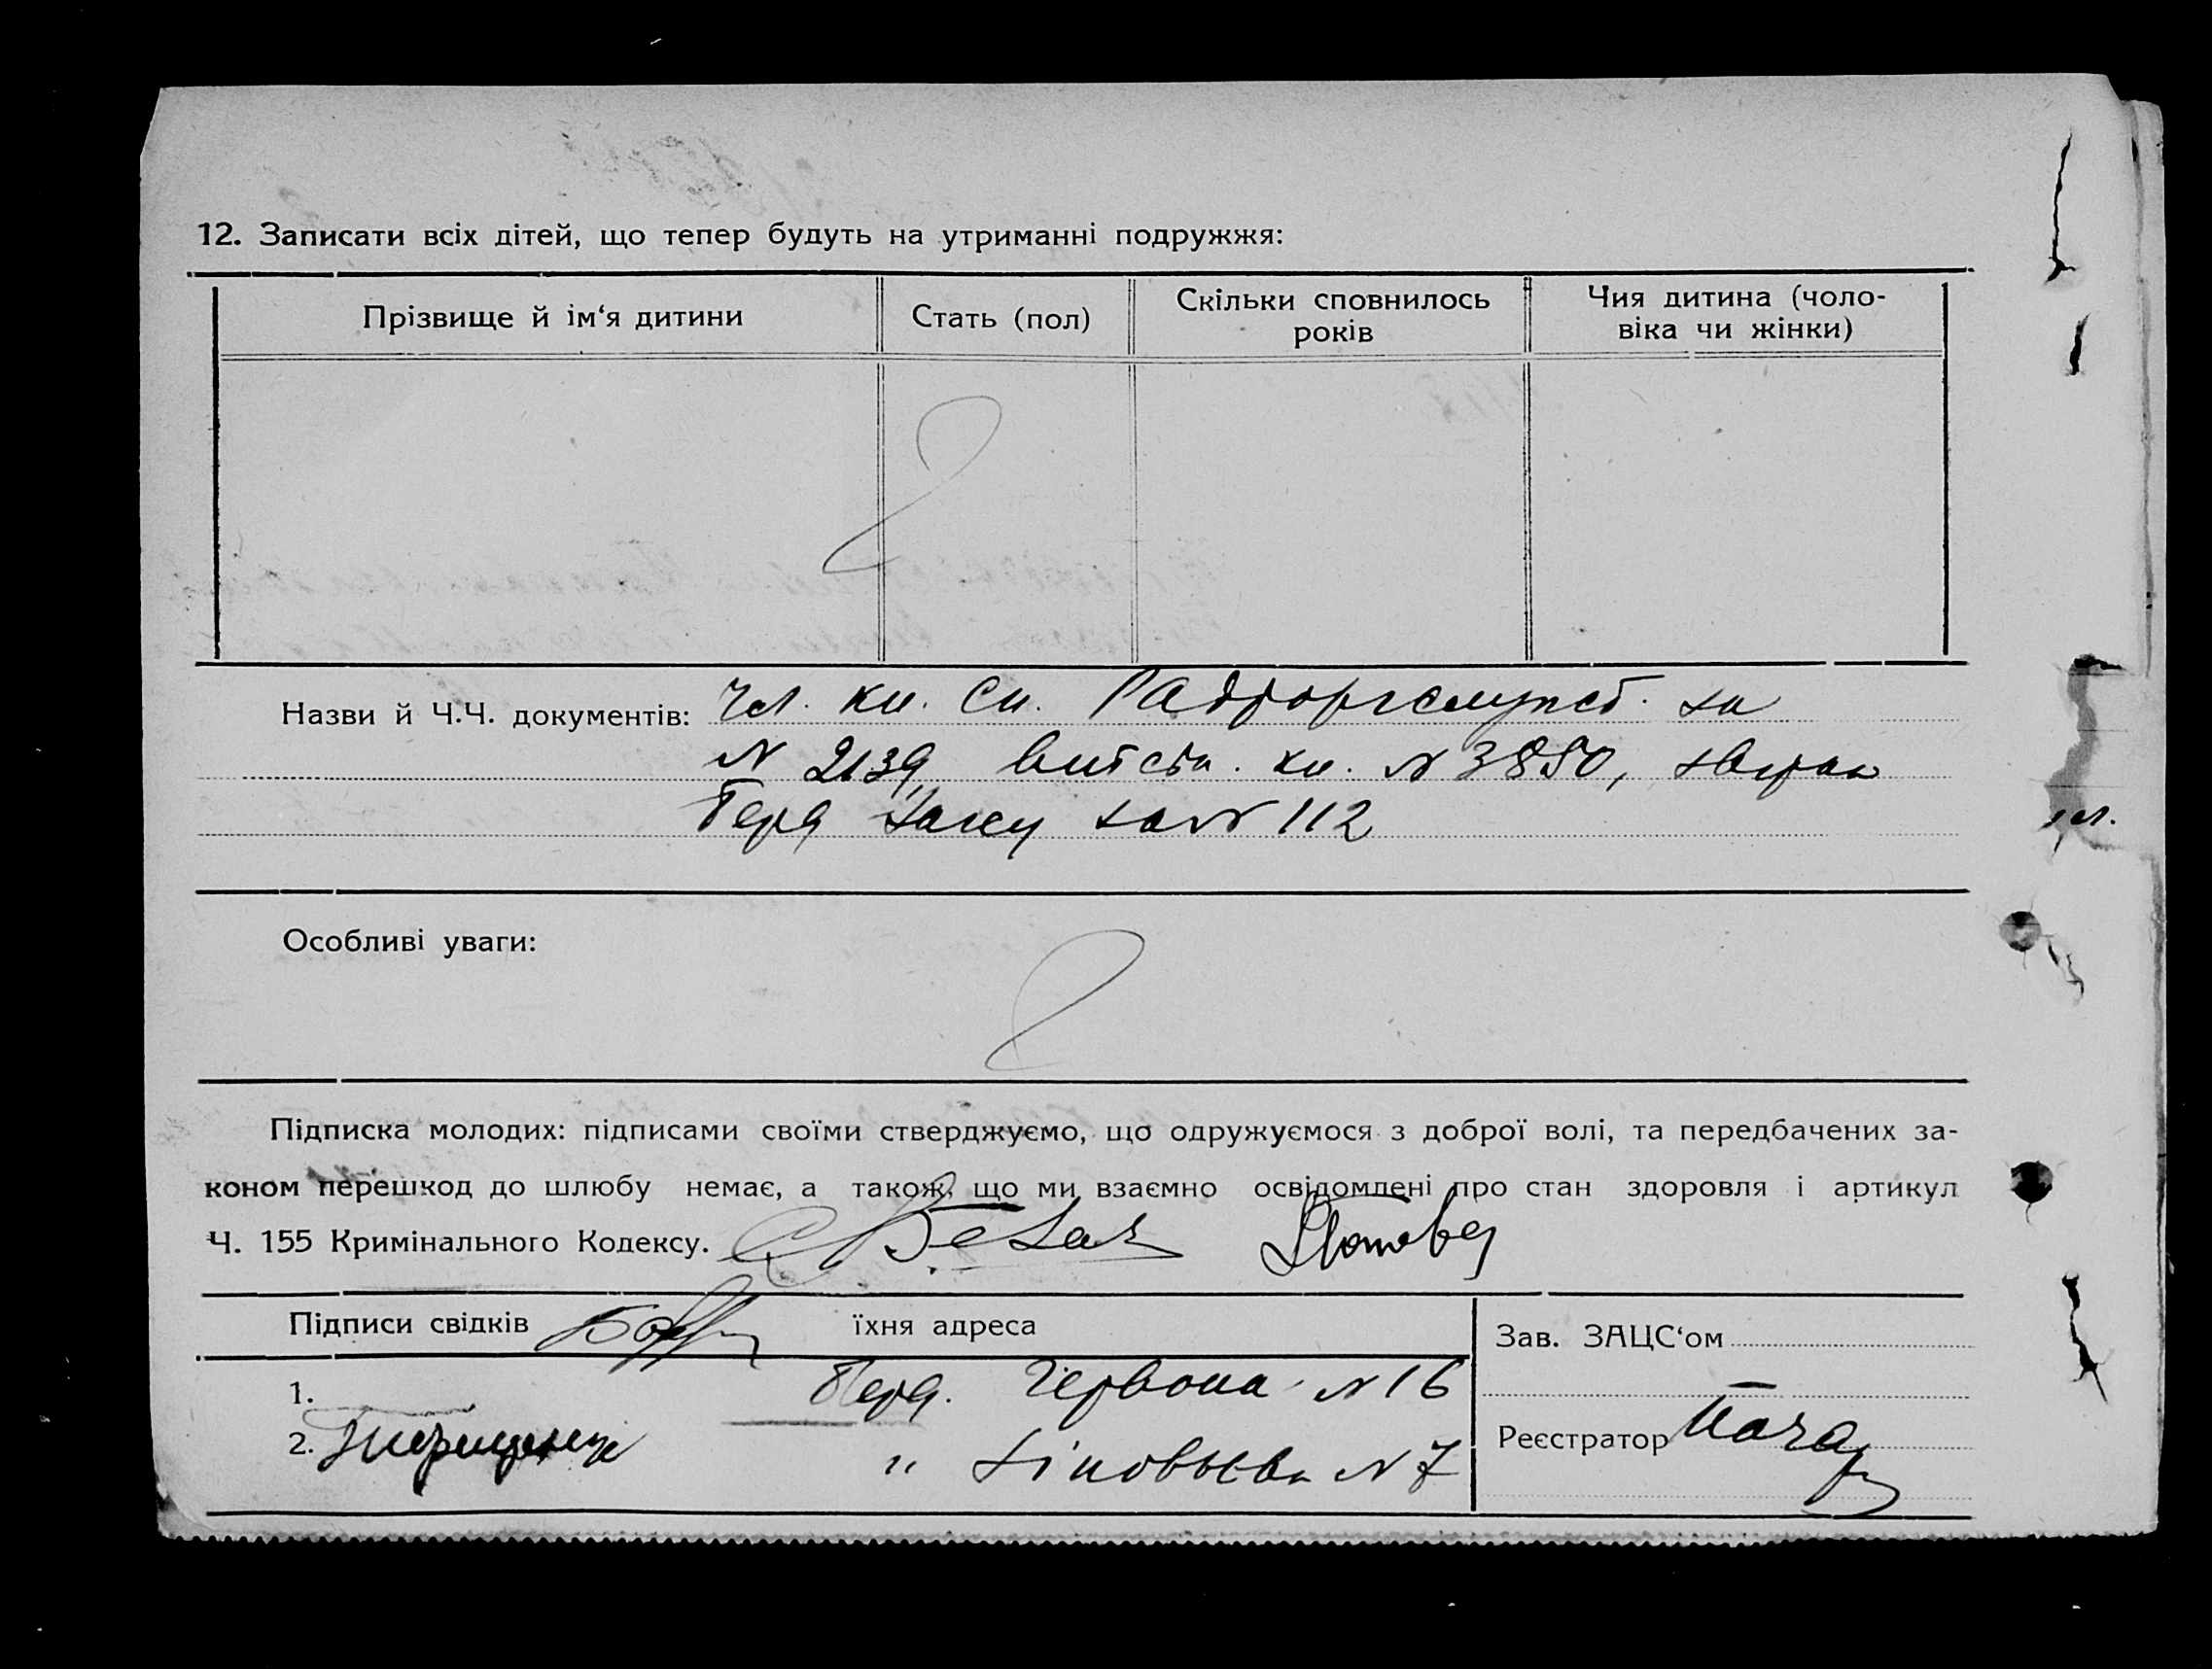 12. Записати всіх дітей, що тепер будуть на утриманні подружжя:
Прізвище й ім‘я дитини
Стать (пол)
Скільки сповнилось
років
Чия дитина (чоло-
віка чи жінки)
Назви й Ч.Ч. документів: Чл. кн. Сп. за
N 2139, кн. N 3850,
за N 112
Особливі уваги:
Підписка молодих: підписами своїми стверджуємо, що одружуємося з доброї волі, та передбачених за-
коном перешкод до шлюбу немає, а також, що ми взаємно освідомлені про стан здоровля і артикул
Ч. 155 Кримінального Кодексу.
Підписи свідків їхня адреса
Зав. ЗАЦС‘ом
1. Червона N 16
2. " Зіновьева N 7
Реєстратор